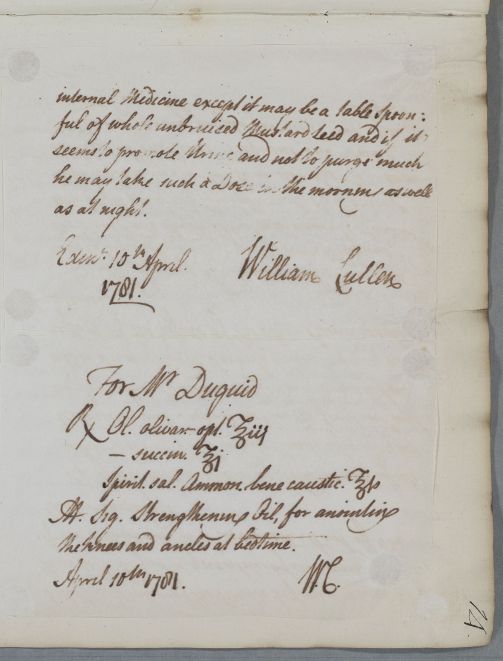 internal Medicine except it may be a table spoon:
ful of whole unbruised Mustard seed and if it
seems to promote Urine and not to purge much
he may take such a Dose in the morning as well
as at night.
Edinr. 10th April. William Cullen
1781.
For Mr Duguid
℞ Ol. olivar. opt. ℥iij
— succin. ℥j
Spirit. sal. Ammon. bene caustic. ℥ſs
M. Sig. Strengthening Oil, for anointing
the knees and ancles at bedtime.
April 10th 1781. W.C.